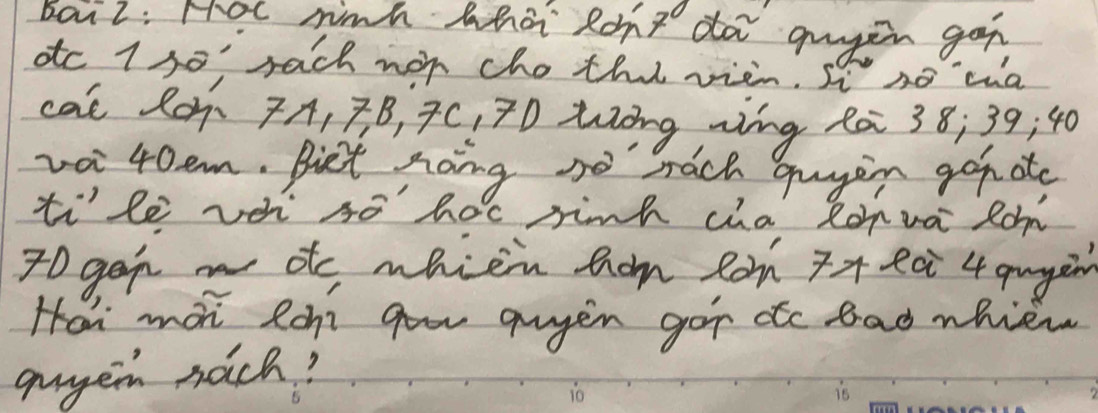 Bài 2: Học sinh khối lớp 7 đã quyên góp
đc 1 số sách nộp cho thư viện. Sĩ số của
các lớp 7A, 7B, 7C, 7D tương ứng là 38; 39; 40
và 40 em. Biết rằng số sách quyên góp đc
tỉ lệ với số học sinh của lớp và lớp
7D góp đc nhiều hơn lớp 7A là 4 quyển
Hỏi mỗi lớp quyên góp đc bao nhiêu
quyển sách?
5 10 15 2